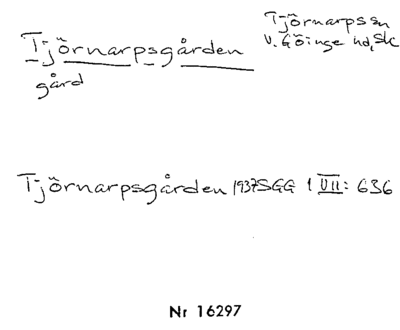 Tjörnarpsgården
gård
Tjörnarps sn
V. Göinge hd, Sk
Tjörnarpsgården 1937 SGG 1 VII: 636
Nr 16297